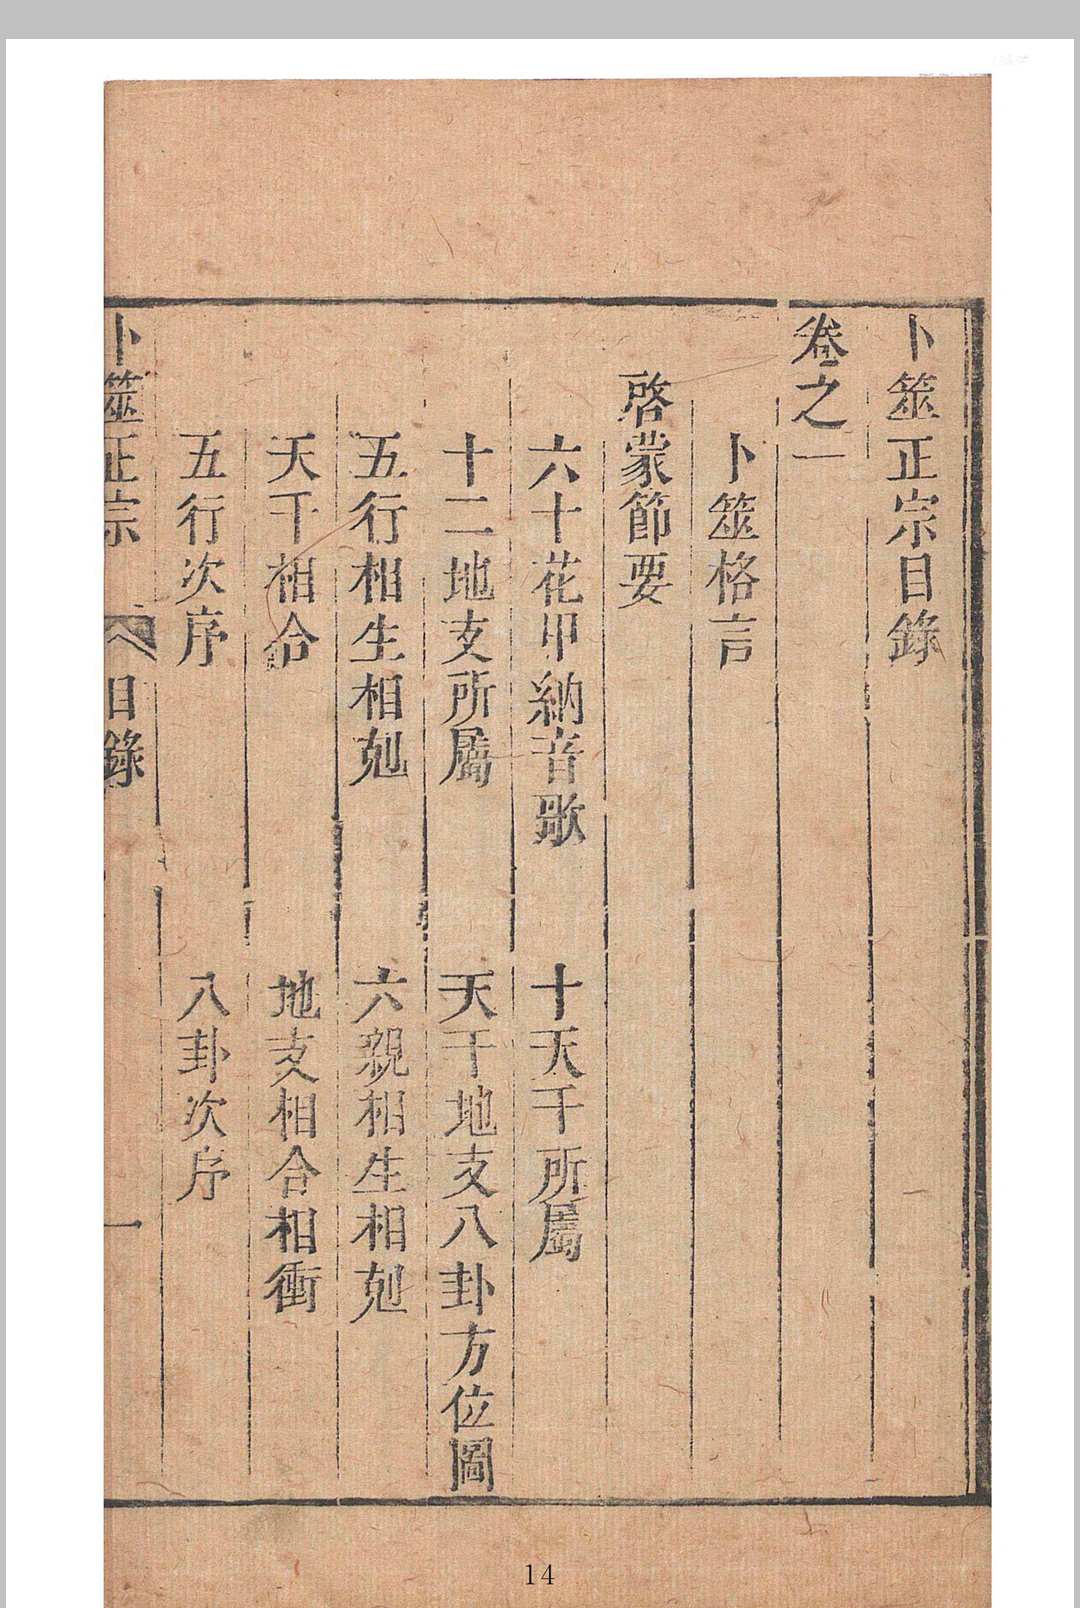 卜筮正宗目錄
卷之一
卜筮格言
啓蒙節要
六十花甲納音歌　十天干所屬
十二地支所屬　天干地支八卦方位圖
五行相生相剋　六親相生相剋
天干相合　地支相合相衝
五行次序　八卦次序
卜筮正宗　目錄　一
14